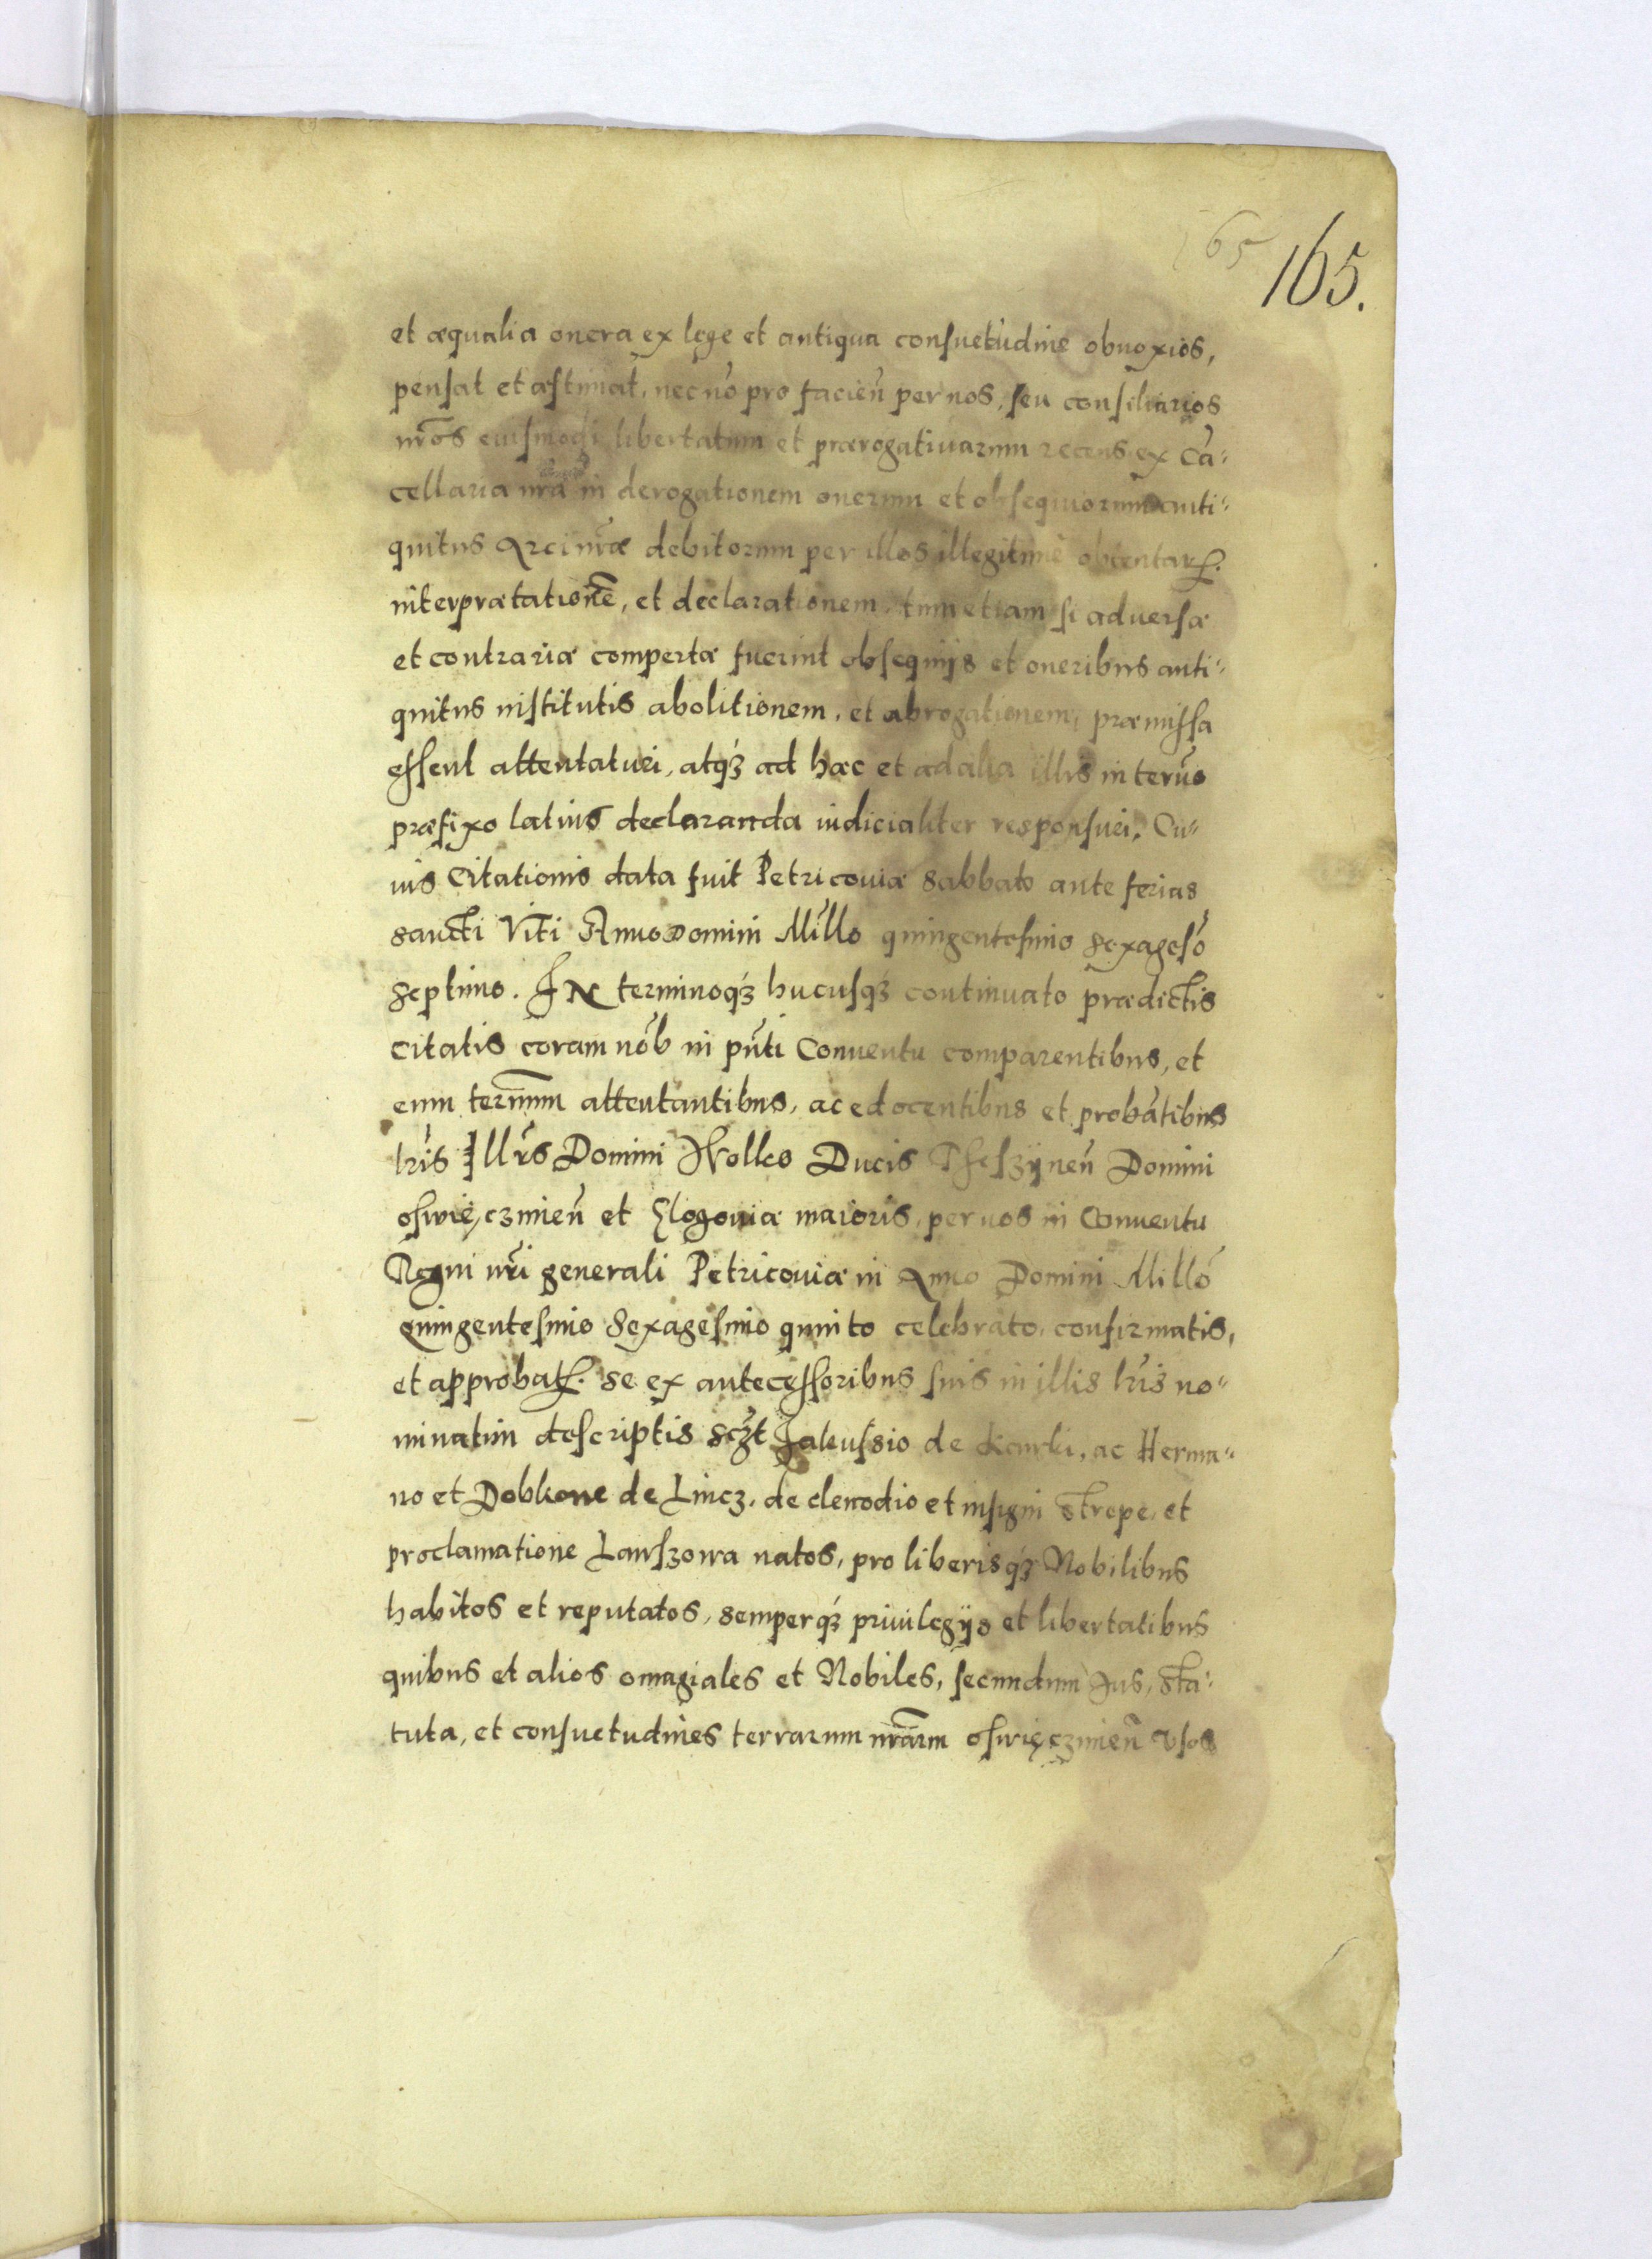 65 165.
et æqualia onera ex lege et antiqua consuetudine obnoxios,
pensat et æstimat, nec nō pro facień per nos, seu consiliarios
nr̄os eiusmodi libertatum et prærogatiuarum recens ex Cā-
cellaria nr̄a in derogationem onerum et obsequiorum anti-
quitus Arci nr̄æ debitorum per illos illegitime obtentarꝝ.
interprætationē, et declarationem, tum etiam si aduersæ
et contrariæ compertæ fuerint obsequijs et oneribus anti-
quitus institutis abolitionem, et abrogationem, præmissa
essent attentaturi, atqȝ ad hæc et ad alia illis in term̄o
præfixo latius declaranda iudicialiter responsuri. Cu-
ius Citationis data fuit Petricouiæ Sabbato ante ferias
sancti Viti Anno Domini Mill̄o quingentesimo Sexagesō
Septimo. IN terminoqȝ hucusqȝ continuato prædictis
Citatis coram nōb in pn̄ti Conuentu comparentibus, et
eum term̄inum attentantibus, ac edocentibus et probātibus
lr̄is Ill̄rs Domini Wolko Ducis Theszÿneń Domini
oswięczimeń et Glogouiæ maioris, per nos in Conuentu
Regni nr̄i generali Petricouiæ in Anno Domini Mill̄o
Quingentesimo Sexagesimo quinto celebrato, confirmatis,
et approbatꝝ. se ex antecessoribus suis in illis lr̄is no-
minatim descriptis scȝt Jakussio de , ac Herma-
no et Dobkone de Lincz, de clenodio et insigni Strepe, et
proclamatione Lawszowa natos, pro liberisqȝ Nobilibus
habitos et reputatos, semperqȝ priuilegijs et libertatibus
quibus et alios omagiales et Nobiles, secundum Jus, Sta-
tuta, et consuetudines terrarum nr̄arum oswięczimeń Vsos